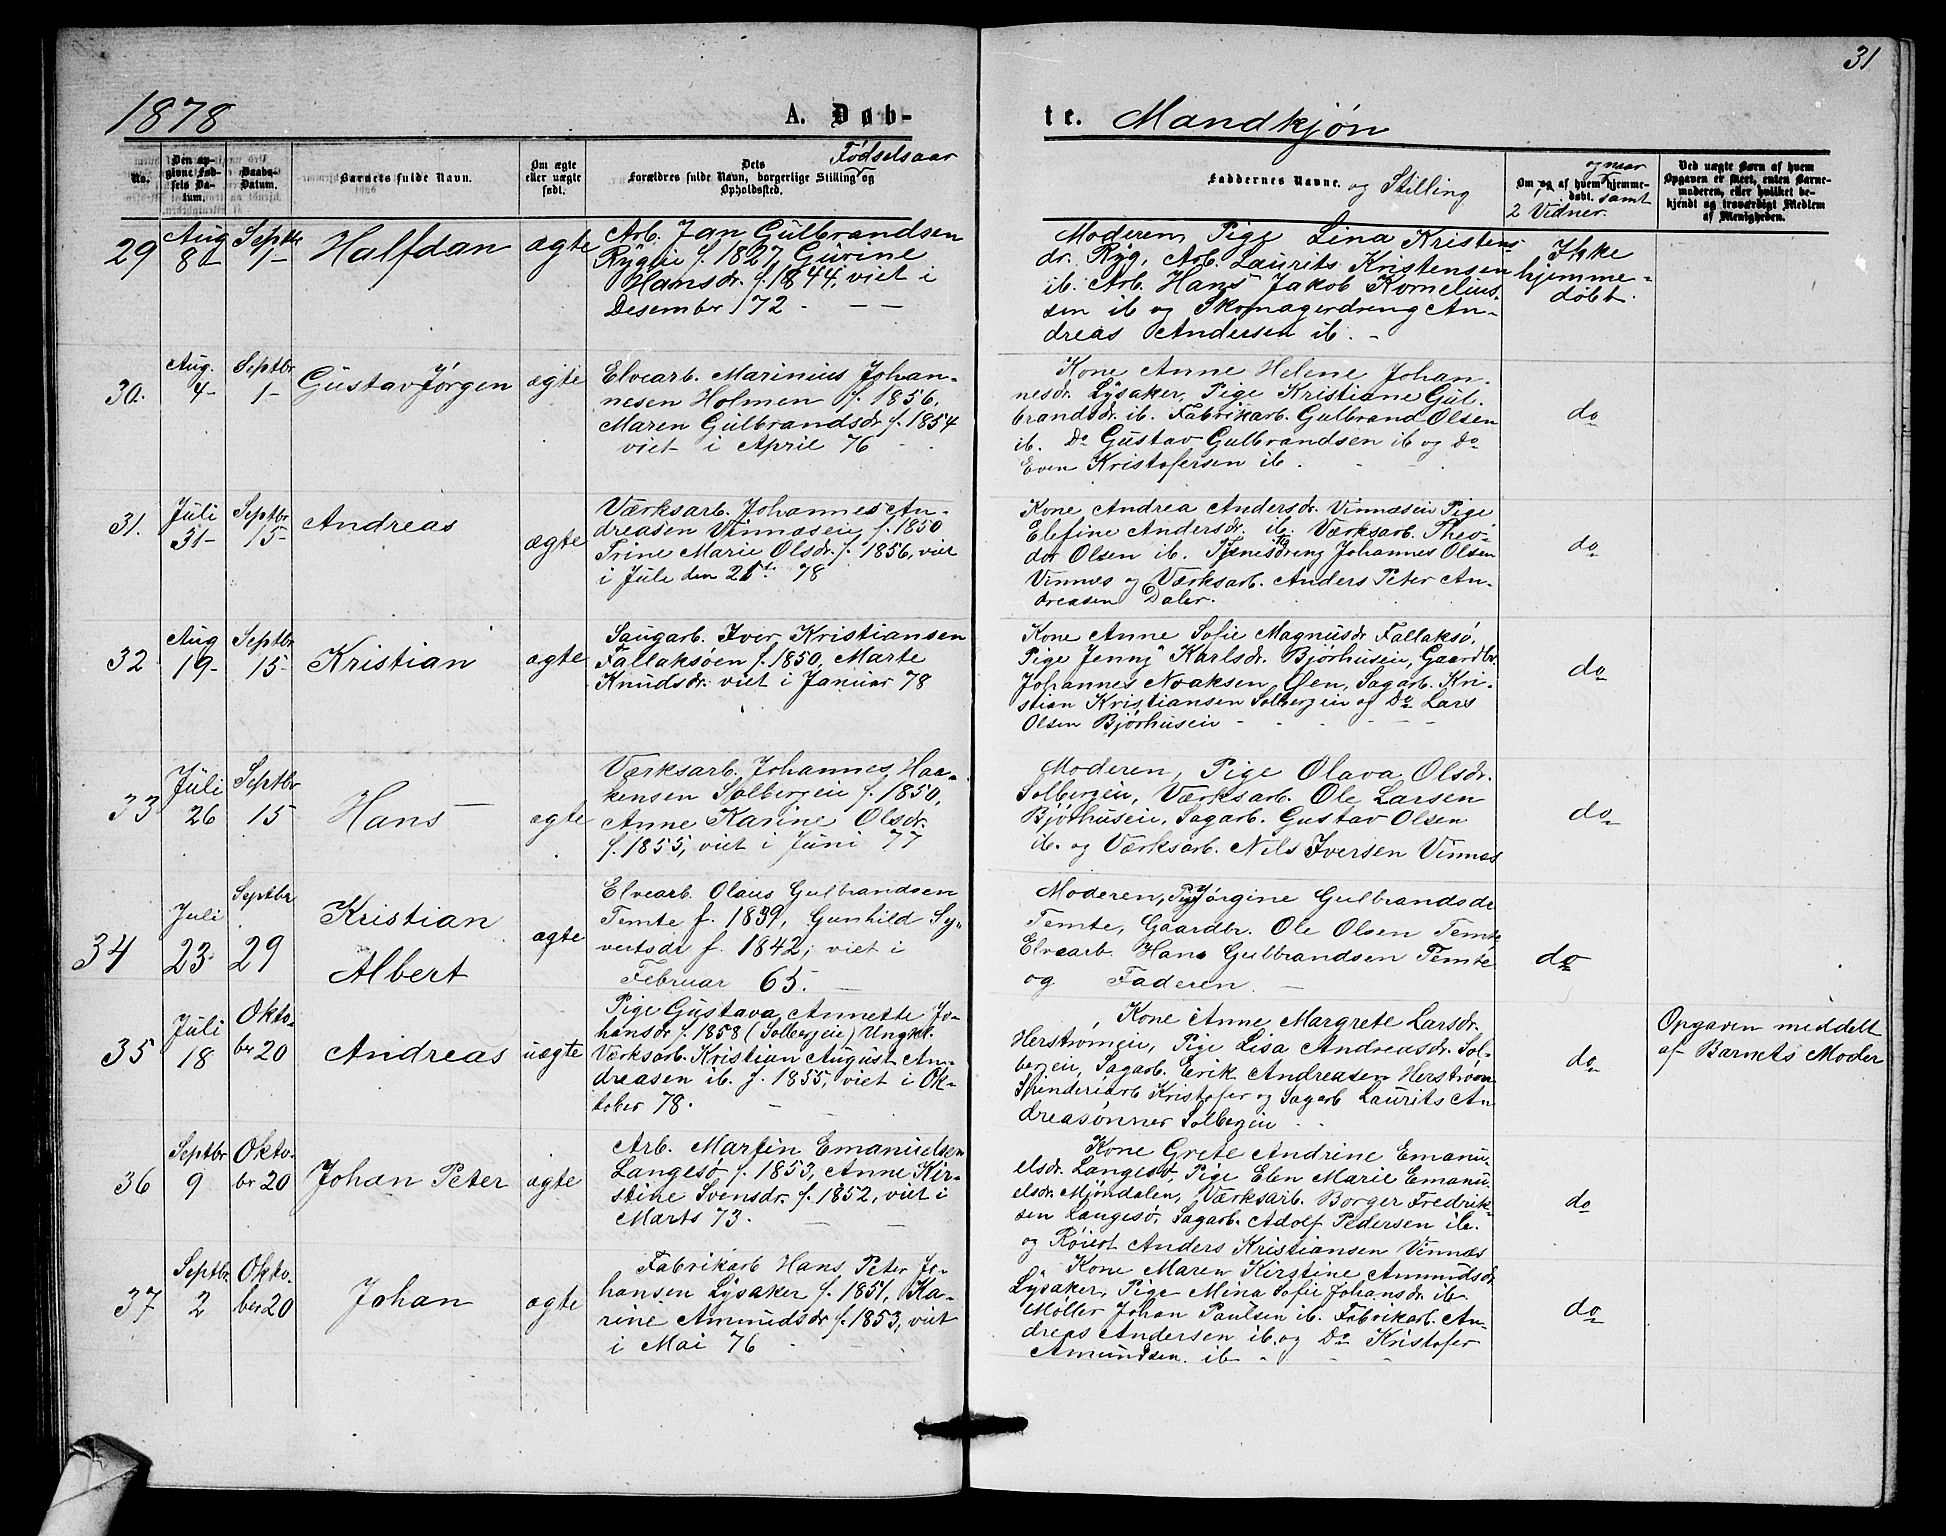 31
1878 A. Døb- te. Mandkjøn
No.
Den opgivne Fødsels Datum.
Daabs-Datum.
Barnets fulde Navn.
Om ægte eller uægte født.
Fødselsaar
Dets Forældres fulde Navn, borgerlige Stilling og Opholdssted.
Faddernes Navne. og Stilling
og naar
Om og af hvem hjemmedøbt. samt
2 Vidner.
Ved uægte Børn af hvem
Opgaven er skeet, enten Barnemoderen, eller hvilket bekjendt og troværdigt Medlem
af Menigheden.
29 Aug 8 Septbr 1 Halfdan ægte
Arb. Jan Gulbrandsen
f. 1827, Gurine
Hansdr. f. 1844, viet i
Desember 72
Moderen, Pige Lina Kristensdr. Ryg, Arb. Laurits Kristensen
ib. Arb. Hans Jakob Kornelius-
sen ib og Skomagerdreng An-
dreas Andersen ib.
Ikke
hjemme-
døbt.
30. Aug. 4 Septbr 1 Gustav Jørgen ægte
Elvearb. Marinius Johan-
nesen Holmen f. 1856,
Maren Gulbrandsdr f. 1854
viet i April 76
Kone Anne Helene Johan-
nesdr. Lysaker, Pige Kristiane Gul-
brandsdr. ib. Fabrikarb. Gulbrand Olsen
ib. Do Gustav Gulbrandsen ib og Do
Even Kristofersen ib.
do
31. Juli 31 Septbr 15 Andreas ægte
Værksarb. Johannes An-
dreasen Vinnæseie f. 1850
Trine Marie Olsdr. f. 1856, viet
i Juli den 21 78
Kone Andrea Andersdr. Vinnæseie Pige
Elefine Andersdr. ib. Værksarb. Theo-
dor Olsen ib. Tjenestdreng Johannes Olsen
Vinnæs og Værksarb. Anders Peter An-
dreasen Daler.
do
32 Aug 19 Septbr 15 Kristian ægte
Saugarb. Iver Kristiansen
Fallaksøen f. 1850, Marte
Knudsdr. viet i Januar 78
Kone Anne Sofie Magnusdr Fallaksø,
Pige Jenny Karlsdr. Bjørhuseie, Gaardbr.
Johannes Noaksen Øen, Sagarb. Kri-
stian Kristiansen Solbergeie og Do Lars
Olsen Bjørhuseie
do
33 Juli 26 Septbr 15 Hans ægte
Værksarb. Johannes Haa-
kensen Solbergeie f. 1850,
Anne Karine Olsdr.
f. 1855, viet i Juni 77
Moderen, Pige Olava Olsdr.
Solbergeie, Værksarb. Ole Larsen
Bjørhuseie, Sagarb. Gustav Olsen
ib. og Værksarb. Nils Iversen Vinnæs
do
34 Juli 23 Septbr 29 Kristian
Albert ægte
Elvearb. Olaus Gulbrandsen
Temte f. 1839, Gunhild Sy-
vertsdr f. 1842, viet i
Februar 65.
Moderen, Pige Jørgine Gulbrandsdr
Temte, Gaardbr. Ole Olsen Temte
Elvearb. Hans Gulbrandsen Temte
og Faderen
do
35 Juli 18 Okto-
ber 20 Andreas uægte
Pige Gustava Annette Jo-
hansdr f. 1858 (Solbergeie) Ungk.
Værksarb. Kristian August An-
dreasen ib. f. 1855, viet i Ok-
tober 78.
Kone Anne Margrete Larsdr.
Herstrømeie, Pige Lisa Andreasdr. Sol-
bergeie, Sagarb. Erik Andreasen Herstrøm
Spinderiarb Kristofer og Sagarb Laurits An
dreasønner Solbergeie
do
Opgaven meddelt
af Barnets Moder
36 Septbr 9 Okto-
ber 20 Johan Peter ægte
Arb. Martin Emanuelsen
Langesø f. 1853, Anne Kir-
stine Svensdr. f. 1852, viet i
Marts 73.
Kone Grete Andrine Emanu-
elsdr. Langesø, Pige Elen Marie Emanu-
elsdr. Mjøndalen, Værksarb. Borger Fredrik-
sen Langesø, Sagarb. Adolf Pedersen ib.
og Anders Kristiansen Vinnæs
do
37 Septbr. 2 Okto-
ber 20 Johan ægte
Fabrikarb Hans Peter Jo-
hansen Lysaker f. 1851, Ka-
rine Amundsdr f. 1853, viet
i Mai 76
Kone Maren Kirstine Amundsdr
Lysaker, Pige Mina Sofie Johansdr. ib.
Møller Johan Paulsen ib. Fabrikarb. An-
dreas Andersen ib. og Do Kristofer
Amundsen ib
do